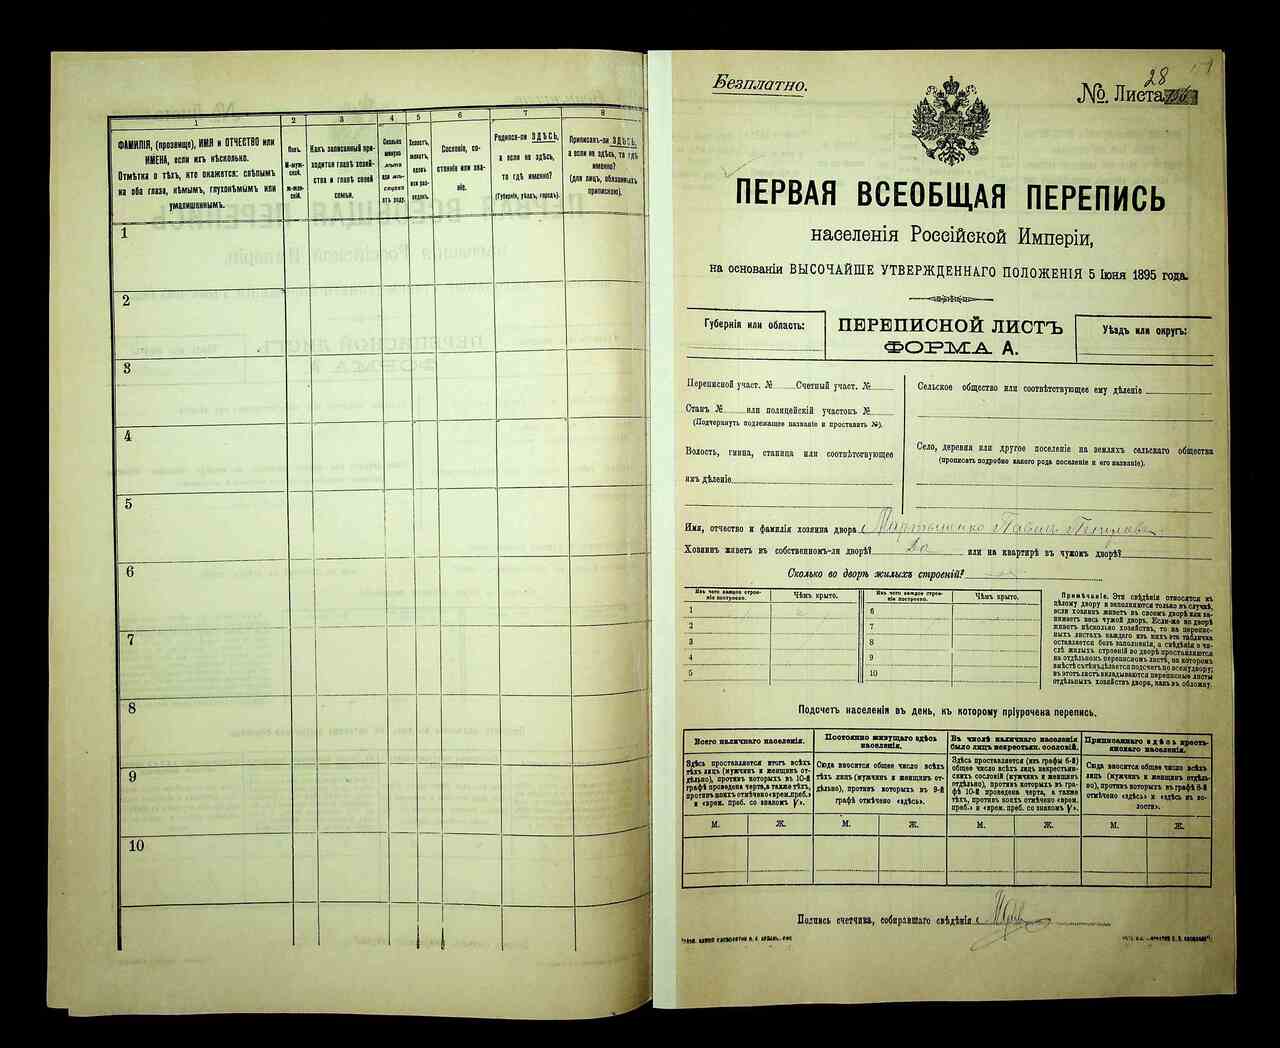 1
2
3
4
5
6
7
8
ФАМИЛІЯ, (прозвище), ИМЯ и ОТЧЕСТВО или
ИМЕНА, если ихъ нѣсколько.
Отмѣтка о тѣхъ, кто окажется: слѣпымъ
на оба глаза, нѣмымъ, глухонѣмымъ или
умалишеннымъ.
Полъ.
М-муж-
ской.
ж-жен-
скій.
Какъ записанный при-
ходится главѣ хозяй-
ства и главѣ своей
семьи.
Сколько
минуло
лѣтъ
или мѣ-
сяцевъ
отъ роду.
Холостъ,
женатъ,
вдовъ
или раз-
веденъ.
Сословіе, со-
стояніе или зва-
ніе.
Родился-ли ЗДѢСЬ,
а если не здѣсь,
то гдѣ именно?
(Губернія, уѣздъ, городъ).
Приписанъ-ли ЗДѢСЬ,
а если не здѣсь, то гдѣ
именно?
(для лицъ, обязанныхъ
припискою).
1
2
3
4
5
6
7
8
9
10
Безплатно.
28
№ Листа
ПЕРВАЯ ВСЕОБЩАЯ ПЕРЕПИСЬ
населенія Россійской Имперіи,
на основаніи ВЫСОЧАЙШЕ УТВЕРЖДЕННАГО ПОЛОЖЕНІЯ 5 Іюня 1895 года.
Губернія или область:
ПЕРЕПИСНОЙ ЛИСТЪ
ФОРМА А.
Уѣздъ или округъ:
Переписной участ. № Счетный участ. №
Станъ № или полицейскій участокъ №
(Подчеркнуть подлежащее названіе и проставить №).
Волость, гмина, станица или соотвѣтствующее
имъ дѣленіе
Сельское общество или соотвѣтствующее ему дѣленіе
Село, деревня или другое поселеніе на земляхъ сельскаго общества
(прописать подробно какого рода поселеніе и его названіе).
Имя, отчество и фамилія хозяина двора
Хозяинъ живетъ въ собственномъ-ли дворѣ? Да или на квартирѣ въ чужомъ дворѣ?
Сколько во дворѣ жилыхъ строеній?
Изъ чего каждое строе-
ніе построено.
Чѣмъ крыто.
1
2
3
4
5
Изъ чего каждое строе-
ніе построено.
Чѣмъ крыто.
6
7
8
9
10
Примѣчаніе. Эти свѣдѣнія относятся къ
цѣлому двору и заполняются только въ случаѣ,
если хозяинъ живетъ въ своемъ дворѣ или за-
нимаетъ весь чужой дворъ. Если-же во дворѣ
живетъ нѣсколько хозяйствъ, то на перепис-
ныхъ листахъ каждаго изъ нихъ эта табличка
оставляется безъ заполненія, а свѣдѣнія о чи-
слѣ жилыхъ строеній во дворѣ проставляются
на отдѣльномъ переписномъ листѣ, на которомъ
вмѣстѣ съ тѣмъ дѣлается подсчетъ по всему двору;
въ этотъ листъ вкладываются переписные листы
отдѣльныхъ хозяйствъ двора, какъ въ обложку.
Подсчетъ населенія въ день, къ которому пріурочена перепись.
Всего наличнаго населенія.
Здѣсь проставляется итогъ всѣхъ
тѣхъ лицъ (мужчинъ и женщинъ от-
дѣльно), противъ которыхъ въ 10-й
графѣ проведена черта, а также тѣхъ,
противъ коихъ отмѣчено «врем. преб.»
и «врем. преб. со знакомъ V».
Постоянно живущаго здѣсь
населенія.
Сюда вносится общее число всѣхъ
тѣхъ лицъ (мужчинъ и женщинъ от-
дѣльно), противъ которыхъ въ 9-й
графѣ отмѣчено «здѣсь».
Въ числѣ наличнаго населенія
было лицъ некрестьян. сословій.
Здѣсь проставляется (изъ графы 6-й)
общее число всѣхъ лицъ некрестьян-
скихъ сословій (мужчинъ и женщинъ
отдѣльно), противъ которыхъ въ гра-
фѣ 10-й проведена черта, а также
тѣхъ, противъ коихъ отмѣчено «врем.
преб.» и «врем. преб. со знакомъ V».
Приписаннаго здѣсь кресть-
янскаго населенія.
Сюда вносится общее число всѣхъ
лицъ (мужчинъ и женщинъ отдѣль-
но), противъ которыхъ въ графѣ 8-й
отмѣчено «здѣсь» и «здѣсь въ во-
лости».
М. Ж. М. Ж. М. Ж. М. Ж.
Подпись счетчика, собиравшаго свѣдѣнія